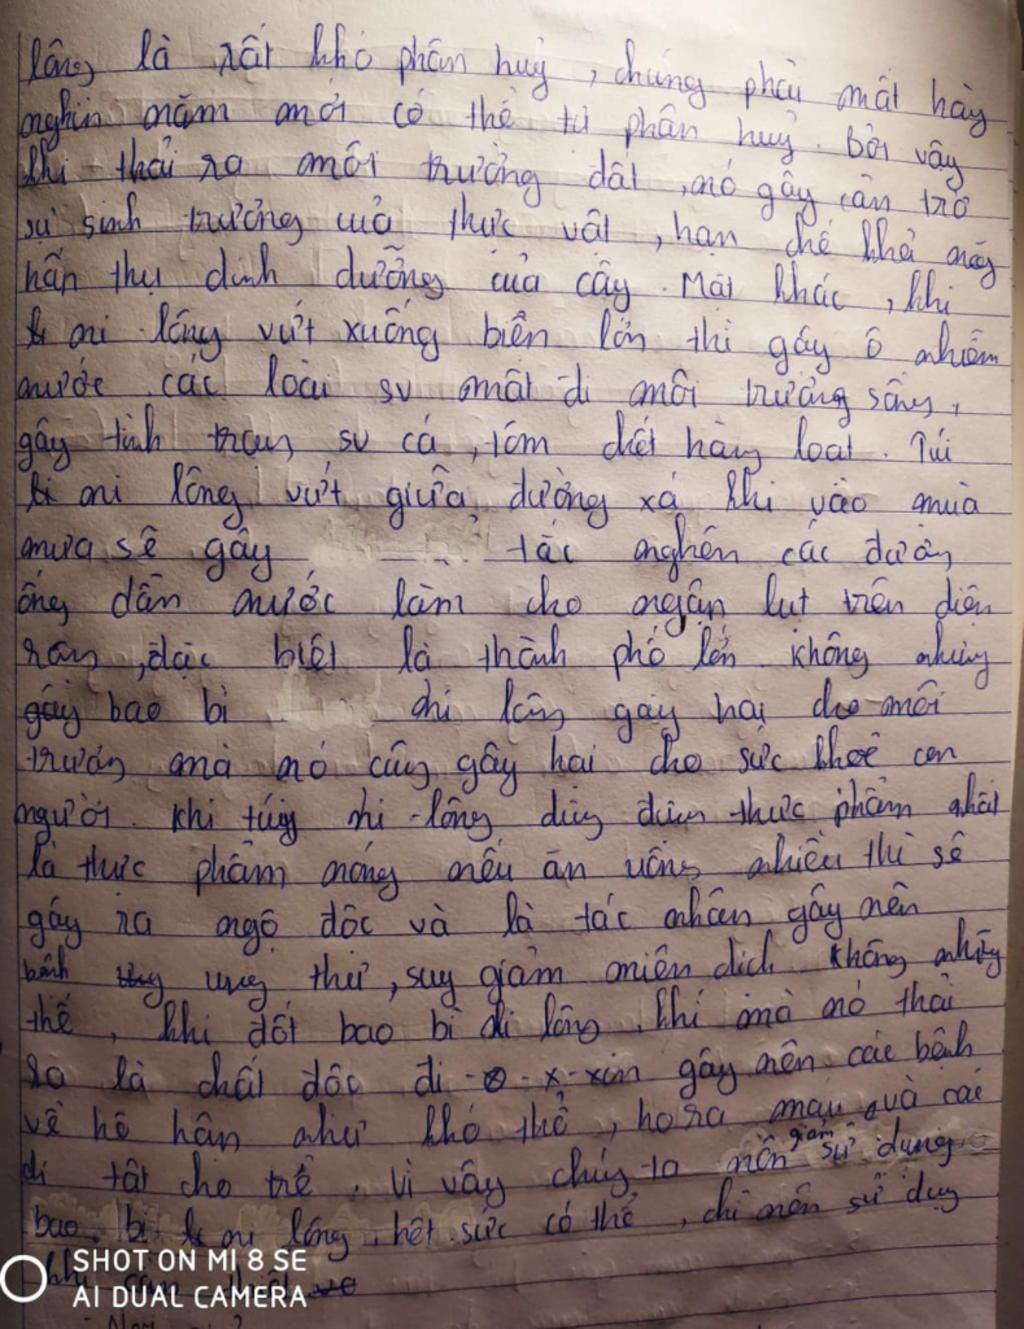 lông là rất khó phân huỷ, chúng phải mất hàg
nghìn năm mới có thể tự phân huỷ. Bởi vậy
khi thải ra môi trường đất, nó gây cản trở
sự sinh trưởng của thực vật, hạn chế khả năg
hấn thụ dinh dưỡng của cây. Mặt khác, khi
ni lông vứt xuống biển lớn thì gây ô nhiễm
nước các loài sv mất đi môi trường sống,
gây tình trạng sv cá, tôm chết hàng loạt. Túi
ni lông vứt giữa đường xá khi vào mùa
mưa sẽ gây tắc nghẽn các đường
ống dẫn nước làm cho ngập lụt trên diện
rộng, đặc biệt là thành phố lớn không nhưng
gây bao bì ni lông gây hại cho môi
trường mà nó cũng gây hại cho sức khoẻ con
người. Khi túi ni-lông dùng đựng thực phẩm nhất
là thực phẩm nóng nếu ăn uống nhiều thì sẽ
gây ra ngộ độc và là tác nhân gây nên
bệnh ung thư, suy giảm miễn dịch. Không những
thế, khi đốt bao bì ni lông, khí mà nó thải
ra là chất độc đi-o-x-xin gây nên các bệnh
về hô hân như khó thở, ho ra máu và các
dị tật cho trẻ. Vì vậy chúg ta nên giảm sử dụng
bao bì ni lông hết sức có thể, chỉ nên sử dụg
khi
SHOT ON MI 8 SE
AI DUAL CAMERA